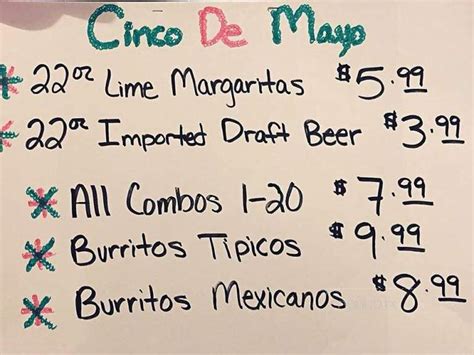 Cinco De Mayo
22oz Lime Margaritas $5.99
22oz Imported Draft Beer $3.99
All Combos 1-20 $7.99
Burritos Tipicos $9.99
Burritos Mexicanos $8.99